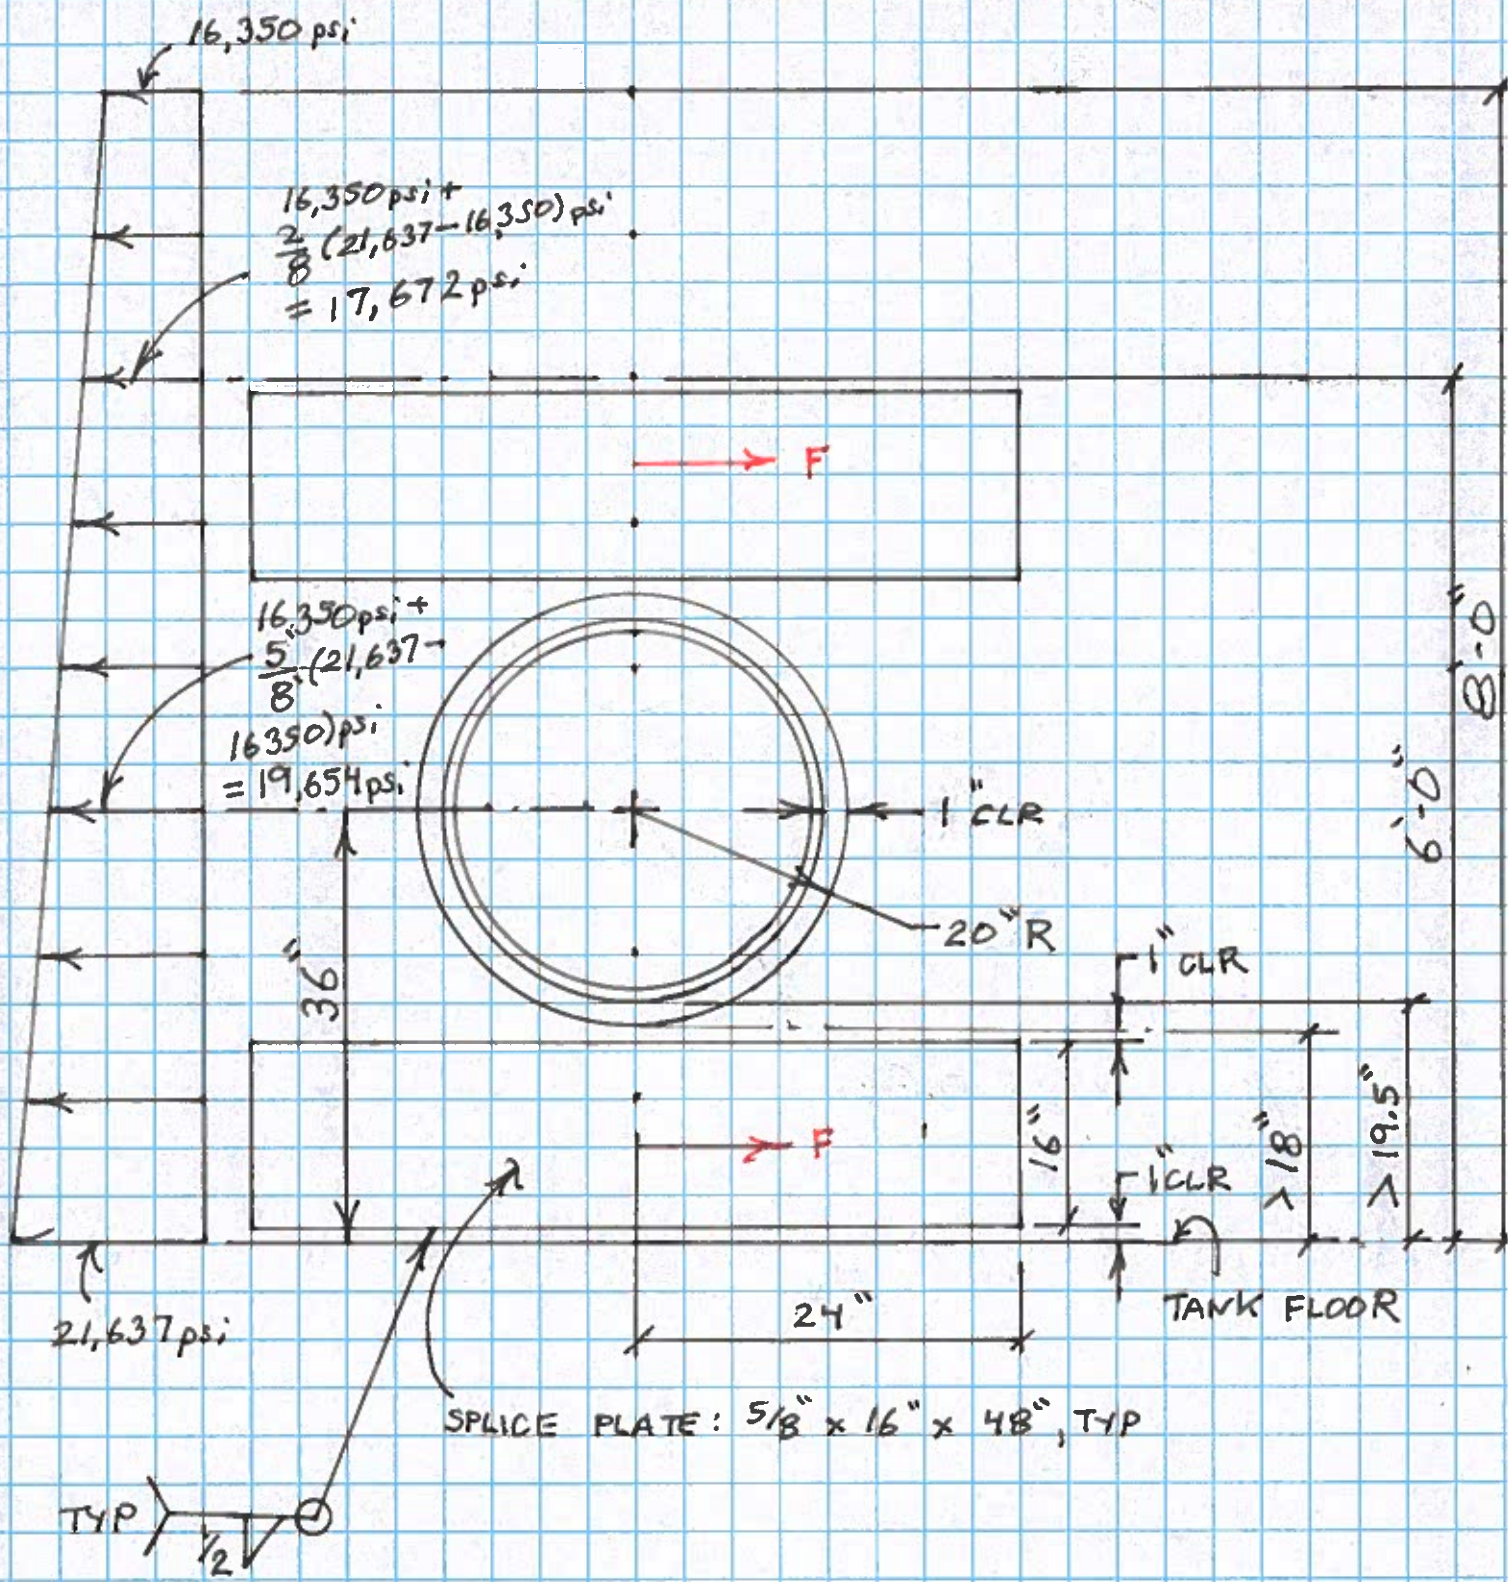 16,350 psi
16,350 psi +
2/8 (21,637-16,350) psi
= 17,672 psi
F
16,350 psi +
5/8 (21,637-
16350) psi
= 19,654 psi
1" CLR
20" R
36"
1" CLR
8'-0"
6'-0"
16"
F
1" CLR
>18"
>19.5"
24"
TANK FLOOR
21,637 psi
SPLICE PLATE: 5/8" x 16" x 48", TYP
TYP
1/2